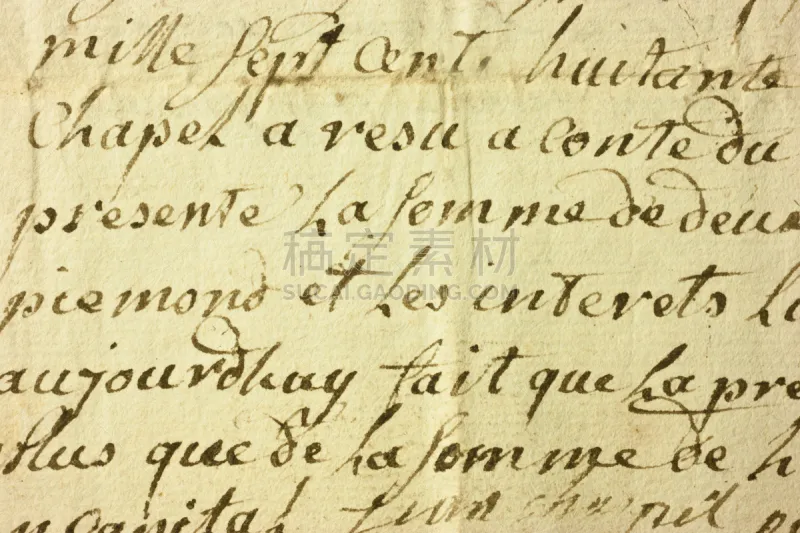 mille sept cent huitante
Chapel a resu a conte du
presente la somme de deux
piemond et les interets la
aujourdhuy fait que la pre
plus que de la somme de h
n capital
稿定素材
SUCAI.GAODING.COM